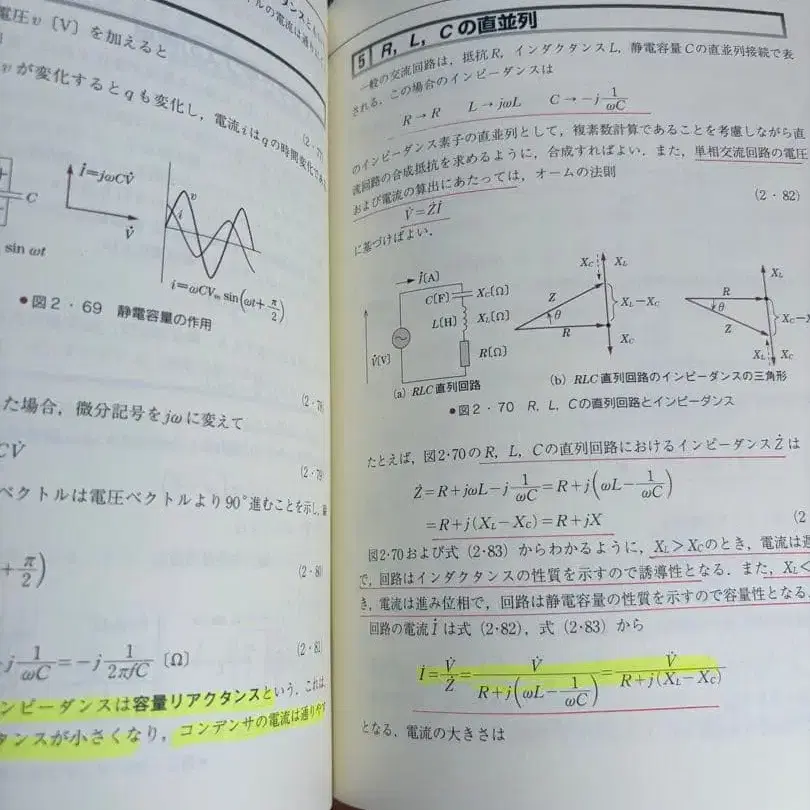 電圧v〔V〕を加えると
vが変化するとqも変化し，電流iはqの時間変化で
C
İ=jωCV̇
V̇
v
i
sin ωt
i=ωCVm sin(ωt+π/2)
●図2・69 静電容量の作用
た場合，微分記号をjωに変えて
CV̇
(2・79)
ベクトルは電圧ベクトルより90°進むことを示し，
+π/2)
(2・80)
j 1/ωC =−j 1/2πfC 〔Ω〕
(2・81)
ンピーダンスは容量リアクタンスという．これは
タンスが小さくなり，コンデンサの電流は通りやす
5 R，L，Cの直並列
一般の交流回路は，抵抗R，インダクタンスL，静電容量Cの直並列接続で表
される．この場合のインピーダンスは
R→R L→jωL C→−j 1/ωC
のインピーダンス素子の直並列として，複素数計算であることを考慮しながら直
流回路の合成抵抗を求めるように，合成すればよい．また，単相交流回路の電圧
および電流の算出にあたっては，オームの法則
V̇=Żİ
(2・82)
に基づけばよい．
İ〔A〕
C〔F〕 XC〔Ω〕
L〔H〕 XL〔Ω〕
R〔Ω〕
V̇〔V〕
(a) RLC直列回路
XC XL
Z
θ
R
XL−XC
XC
XL
R
θ
Z
XC−X
XL XC
(b) RLC直列回路のインピーダンスの三角形
●図2・70 R，L，Cの直列回路とインピーダンス
たとえば，図2・70のR，L，Cの直列回路におけるインピーダンスŻは
Ż=R+jωL−j 1/ωC =R+j(ωL−1/ωC)
=R+j(XL−XC)=R+jX
(2
図2・70および式(2・83)からわかるように，XL>XCのとき，電流は遅
で，回路はインダクタンスの性質を示すので誘導性となる．また，XL<
き，電流は進み位相で，回路は静電容量の性質を示すので容量性となる．
回路の電流İは式(2・82)，式(2・83)から
İ=V̇/Ż=V̇/R+j(ωL−1/ωC)=V̇/R+j(XL−XC)
となる．電流の大きさは